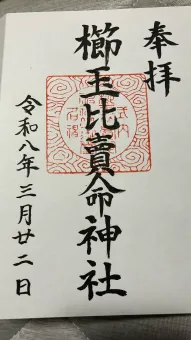 奉拝
櫛玉比賣命神社
令和八年三月廿二日